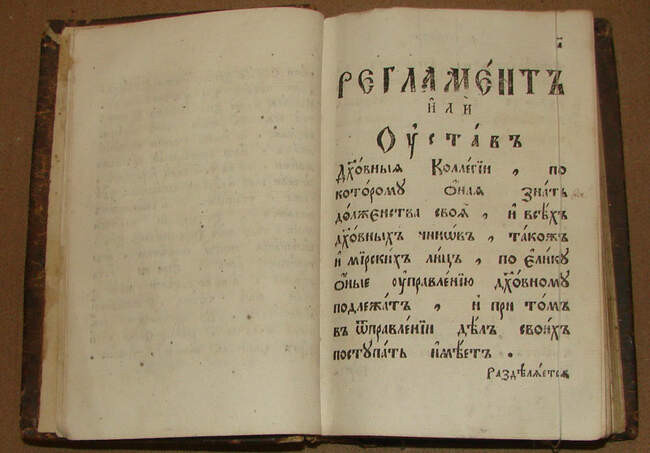 РЕГЛАМЕ́НТЪ
И҆ЛЍ
Оу҆СТА́ВЪ
Дх҃о́вныѧ Колле́гїи , по
кото́рому ѻ҆́наѧ зна́ть
до́лженства своѧ̀ , и҆ всѣ́хъ
дх҃о́вныхъ чинѡ́въ , та́кожъ
и҆ мїрски́хъ ли́цъ , по є҆ли́ку
ѻ҆́ные оу҆правле́нїю дх҃о́вному
подлежа́тъ , и҆ при то́мъ
въ ѿправле́нїи дѣ́лъ свои́хъ
поступа́ть и҆мѣ́етъ .
Раздѣлѧ́етсѧ